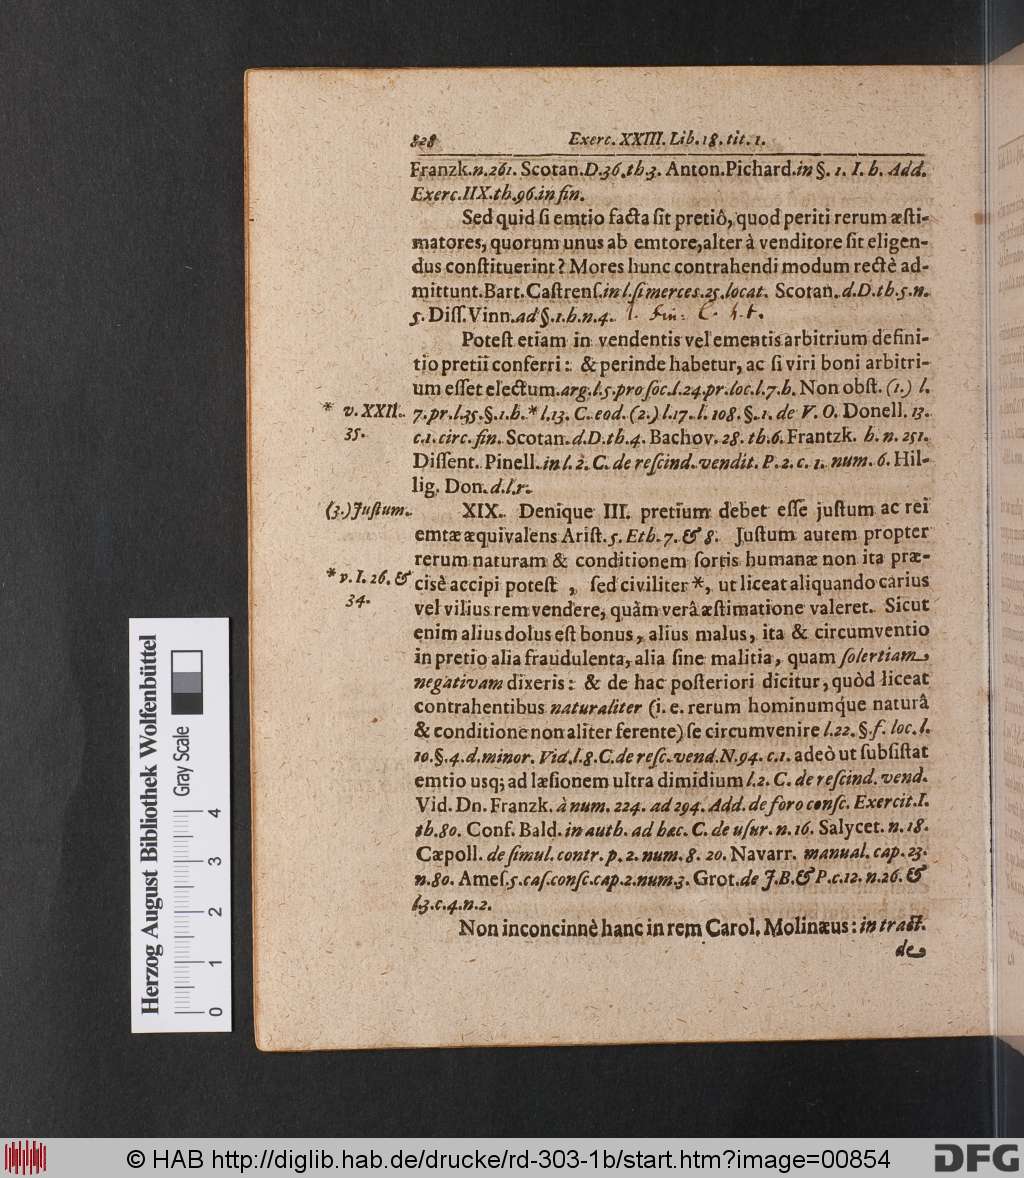 828 Exerc. XXIII. Lib. 18. tit. 1.
Franzk. n. 261. Scotan. D. 36. th. 3. Anton. Pichard. in §. 1. I. h. Add.
Exerc. IIX. th. 96. in fin.
Sed quid ſi emtio facta ſit pretiô, quod periti rerum æſti-
matores, quorum unus ab emtore, alter à venditore ſit eligen-
dus conſtituerint? Mores hunc contrahendi modum rectè ad-
mittunt. Bart. Caſtrenſ. in l. ſi merces. 25. locat. Scotan. d. D. th. 5. n.
5. Diſſ. Vinn. ad §. 1. h. n. 4. l. fin. C. h. t.
Poteſt etiam in vendentis vel ementis arbitrium defini-
tio pretii conferri: & perinde habetur, ac ſi viri boni arbitri-
um eſſet electum. arg. l. 5. pro ſoc. l. 24. pr. loc. l. 7. h. Non obſt. (1.) l.
* v. XXII. 7. pr. l. 35. §. 1. h. * l. 13. C. eod. (2.) l. 17. l. 108. §. 1. de V. O. Donell. 13.
35. c. 1. circ. fin. Scotan. d. D. th. 4. Bachov. 28. th. 6. Frantzk. h. n. 251.
Diſſent. Pinell. in l. 2. C. de reſcind. vendit. P. 2. c. 1. num. 6. Hil-
lig. Don. d. l. r.
(3.) Juſtum. XIX. Denique III. pretium debet eſſe juſtum ac rei
emtæ æquivalens Ariſt. 5. Eth. 7. & 8. Juſtum autem propter
rerum naturam & conditionem ſortis humanæ non ita præ-
* v. I. 26. & ciſè accipi poteſt, ſed civiliter *, ut liceat aliquando carius
34. vel vilius rem vendere, quàm verâ æſtimatione valeret. Sicut
enim alius dolus eſt bonus, alius malus, ita & circumventio
in pretio alia fraudulenta, alia ſine malitia, quam ſolertiam
negativam dixeris: & de hac poſteriori dicitur, quòd liceat
contrahentibus naturaliter (i. e. rerum hominumq́ue naturâ
& conditione non aliter ferente) ſe circumvenire l. 22. §. f. loc. l.
10. §. 4. d. minor. Vid. l. 8. C. de reſc. vend. N. 94. c. 1. adeò ut ſubſiſtat
emtio usq; ad læſionem ultra dimidium l. 2. C. de reſcind. vend.
Vid. Dn. Franzk. à num. 224. ad 294. Add. de foro conſc. Exercit. I.
th. 80. Conf. Bald. in auth. ad hæc. C. de uſur. n. 16. Salycet. n. 18.
Cæpoll. de ſimul. contr. p. 2. num. 8. 20. Navarr. manual. cap. 23.
n. 80. Ameſ. 5. caſ. conſc. cap. 2. num. 3. Grot. de J. B. & P. c. 12. n. 26. &
l. 3. c. 4. n. 2.
Non inconcinnè hanc in rem Carol. Molinæus: in tract.
de
Herzog August Bibliothek Wolfenbüttel
Gray Scale
0 1 2 3 4
© HAB http://diglib.hab.de/drucke/rd-303-1b/start.htm?image=00854
DFG